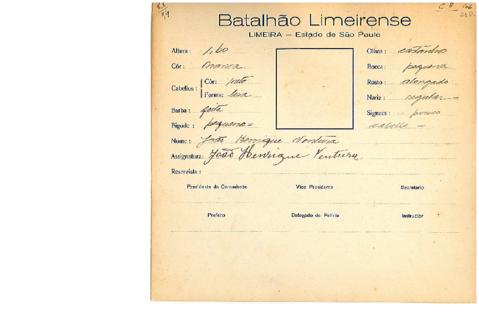 C 8
Batalhão Limeirense
LIMEIRA — Estado de São Paulo
Altura : 1,60
Côr: branca
Cabellos : Côr: preto
Forma: lisa
Barba : feita
Bigode : pequeno
Olhos: castanho
Bocca: pequena
Rosto: alongado
Nariz : regular
Signaes : pouco
cabello
Nome : João Henrique Ventura
Assignatura: João Henrique Ventura
Reservista :
Presidente da Comissão Vice Presidente Secretario
Prefeito Delegado de Policia Instructor